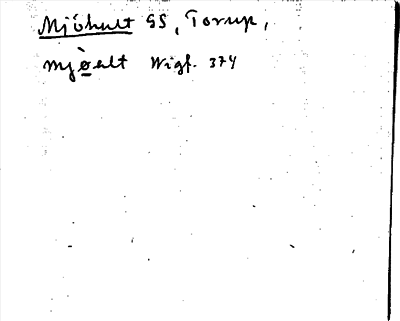 Mjöhult GS, Torup,
mjø̀ȧlt Wigf. 374